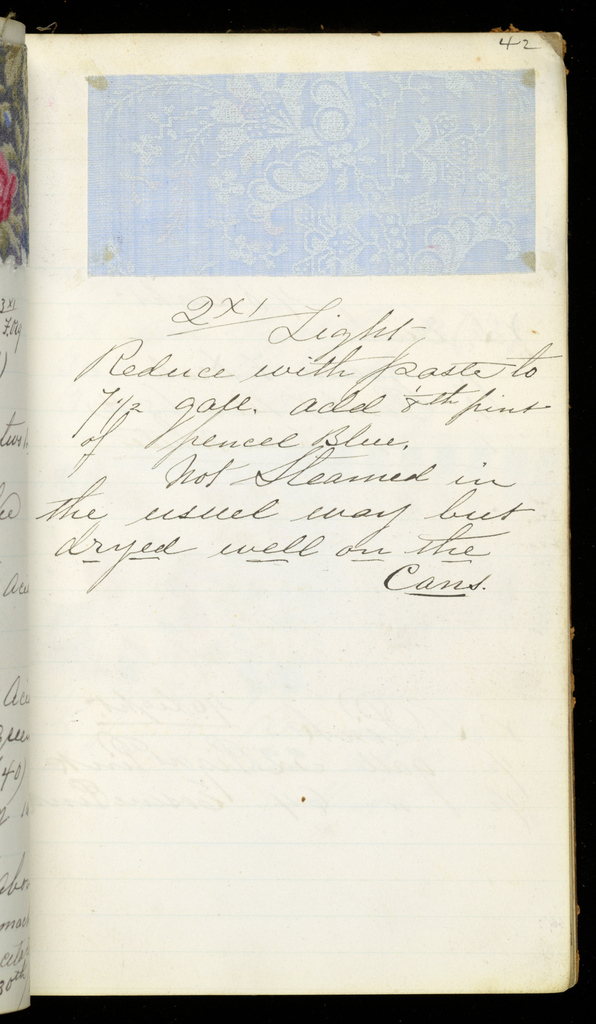 42
2x1 Light
Reduce with paste to
7 1/2 gall. add 8th pint
of pencel Blue.
Not Steamed in
the usuel way but
dryed well on the
Cans.
3x1